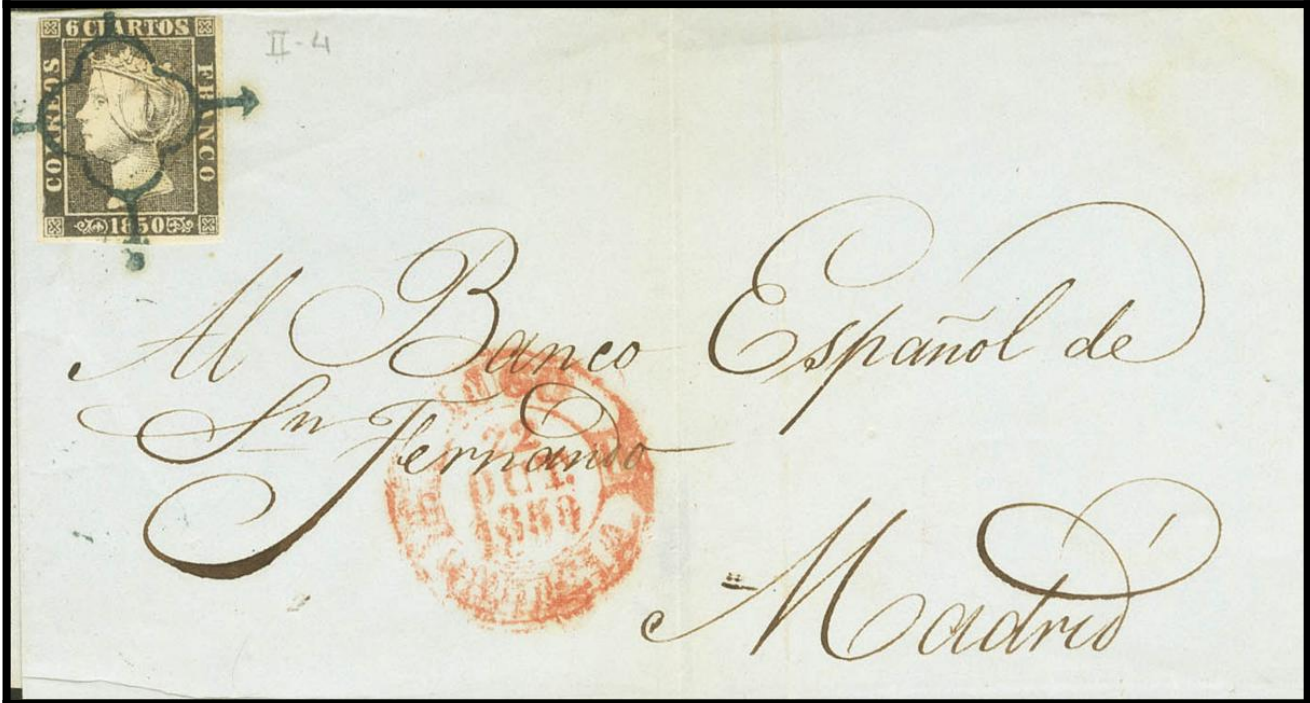 6 CUARTOS
II-4
CORREOS
FRANCO
1850
Al Banco Español de
Sn Fernando
22
JUL.
1850
Madrid